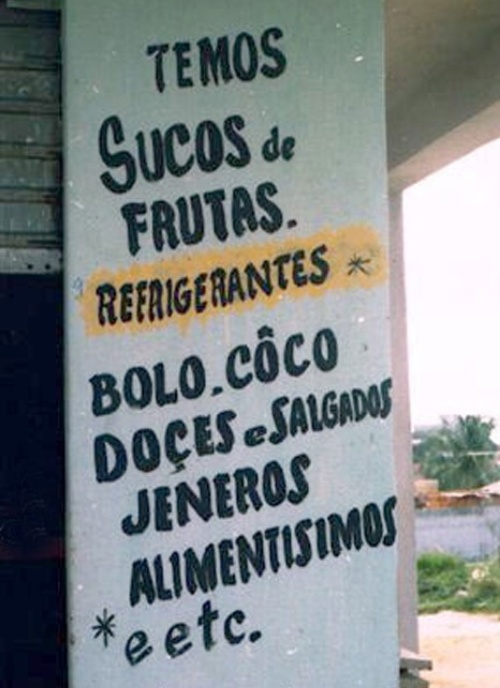 TEMOS
SUCOS de
FRUTAS.
REFRIGERANTES *
BOLO.CÔCO
DOÇES e SALGADOS
JENEROS
ALIMENTISIMOS
* e etc.